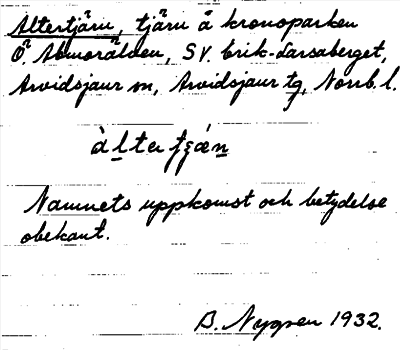 Altertjärn, tjärn å kronoparken
Ö. Abmorälden, SV. Erik-Larsaberget,
Arvidsjaur sn, Arvidsjaur tg, Norrb. l.
àltertʃǽn
Namnets uppkomst och betydelse
obekant.
B. Nygren 1932.